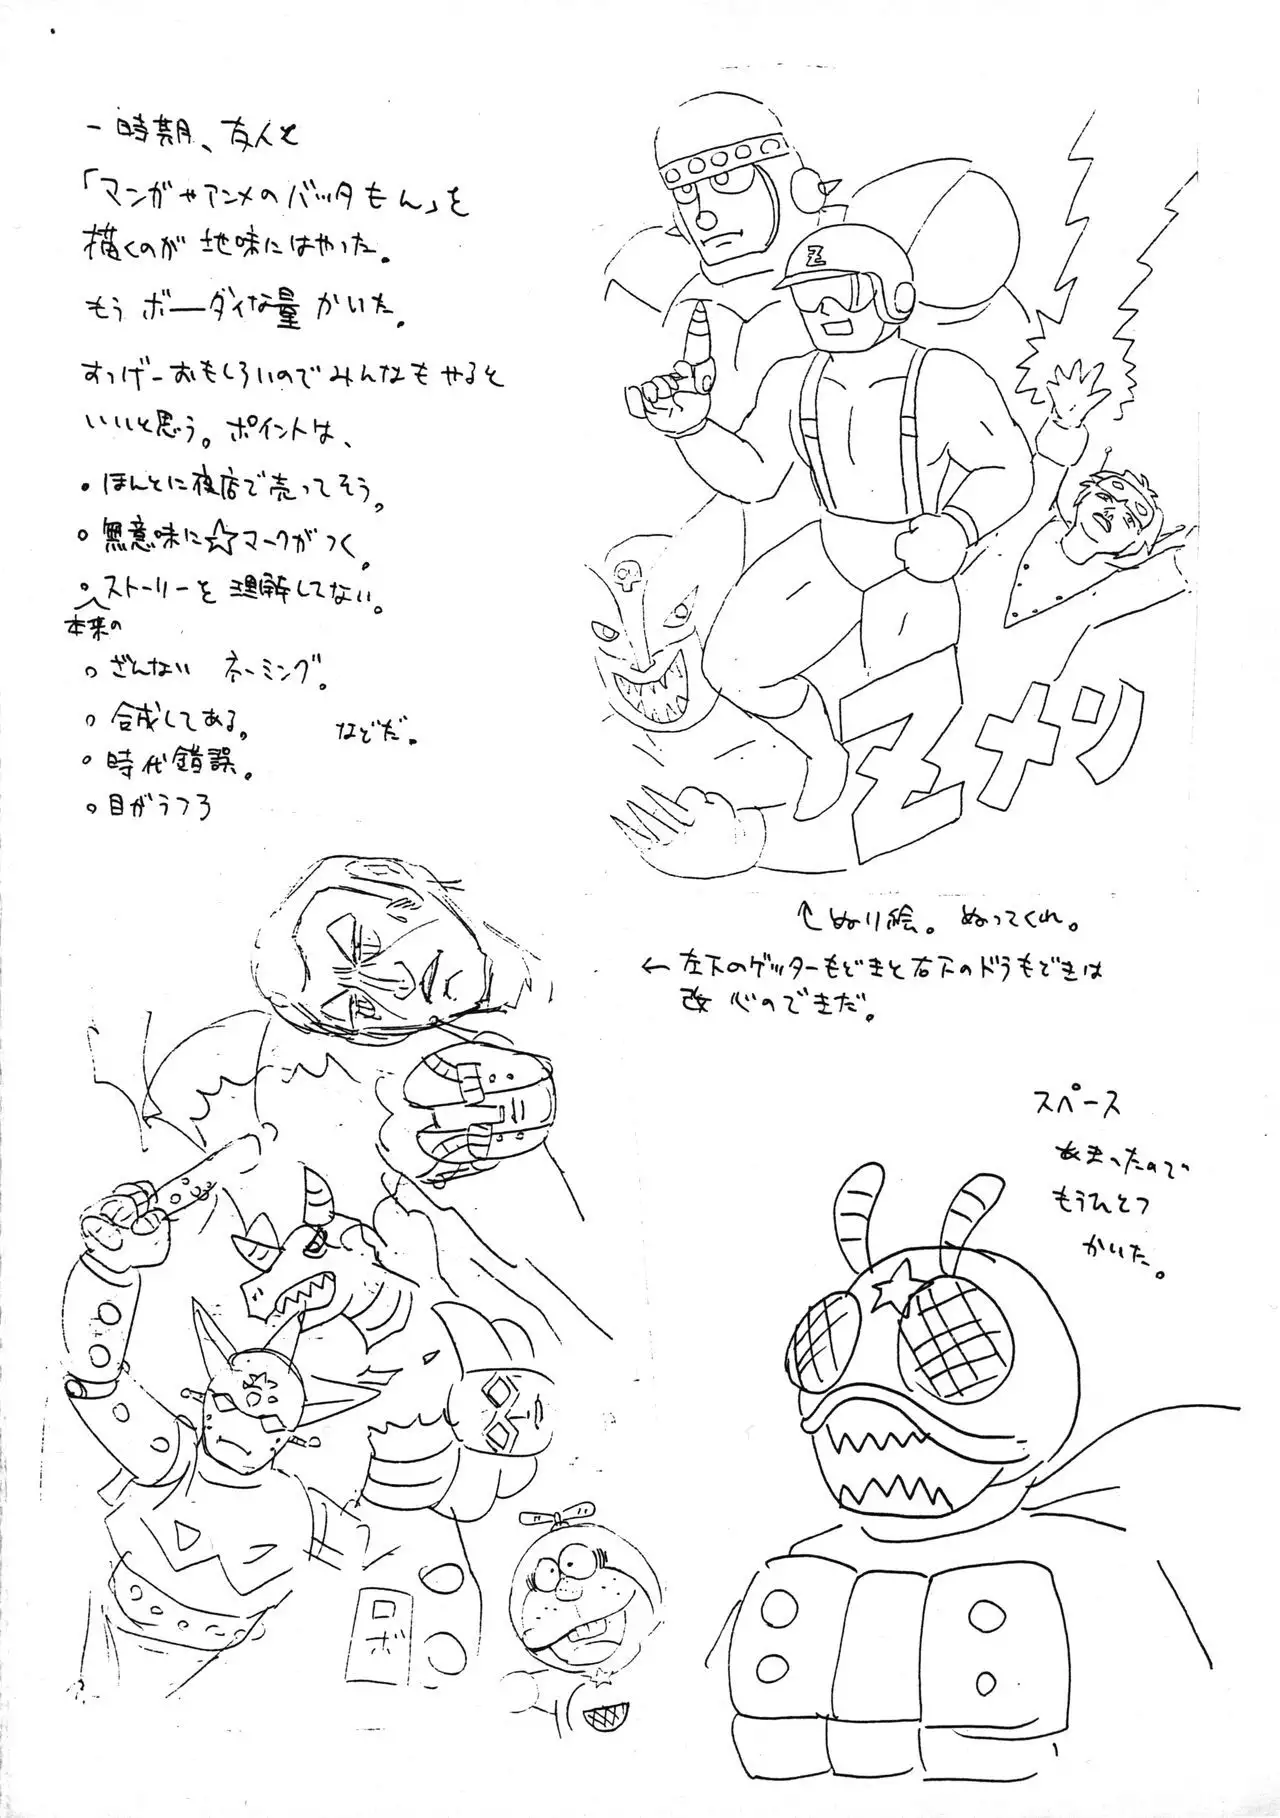 一時期、友人と
「マンガやアニメのバッタもん」を
描くのが地味にはやった。
もうボーダイな量かいた。
すっげーおもしろいのでみんなもやると
いいと思う。ポイントは、
• ほんとに夜店で売ってそう。
• 無意味に☆マークがつく。
• 本来のストーリーを理解してない。
• ざんないネーミング。
• 合成してある。
などだ。
• 時代錯誤。
• 目がうつろ
Z
Zメン
↑ぬり絵。ぬってくれ。
← 左下のゲッターもどきと右下のドラもどきは
改心のできだ。
スペース
あまったので
もうひとつ
かいた。
ロボ